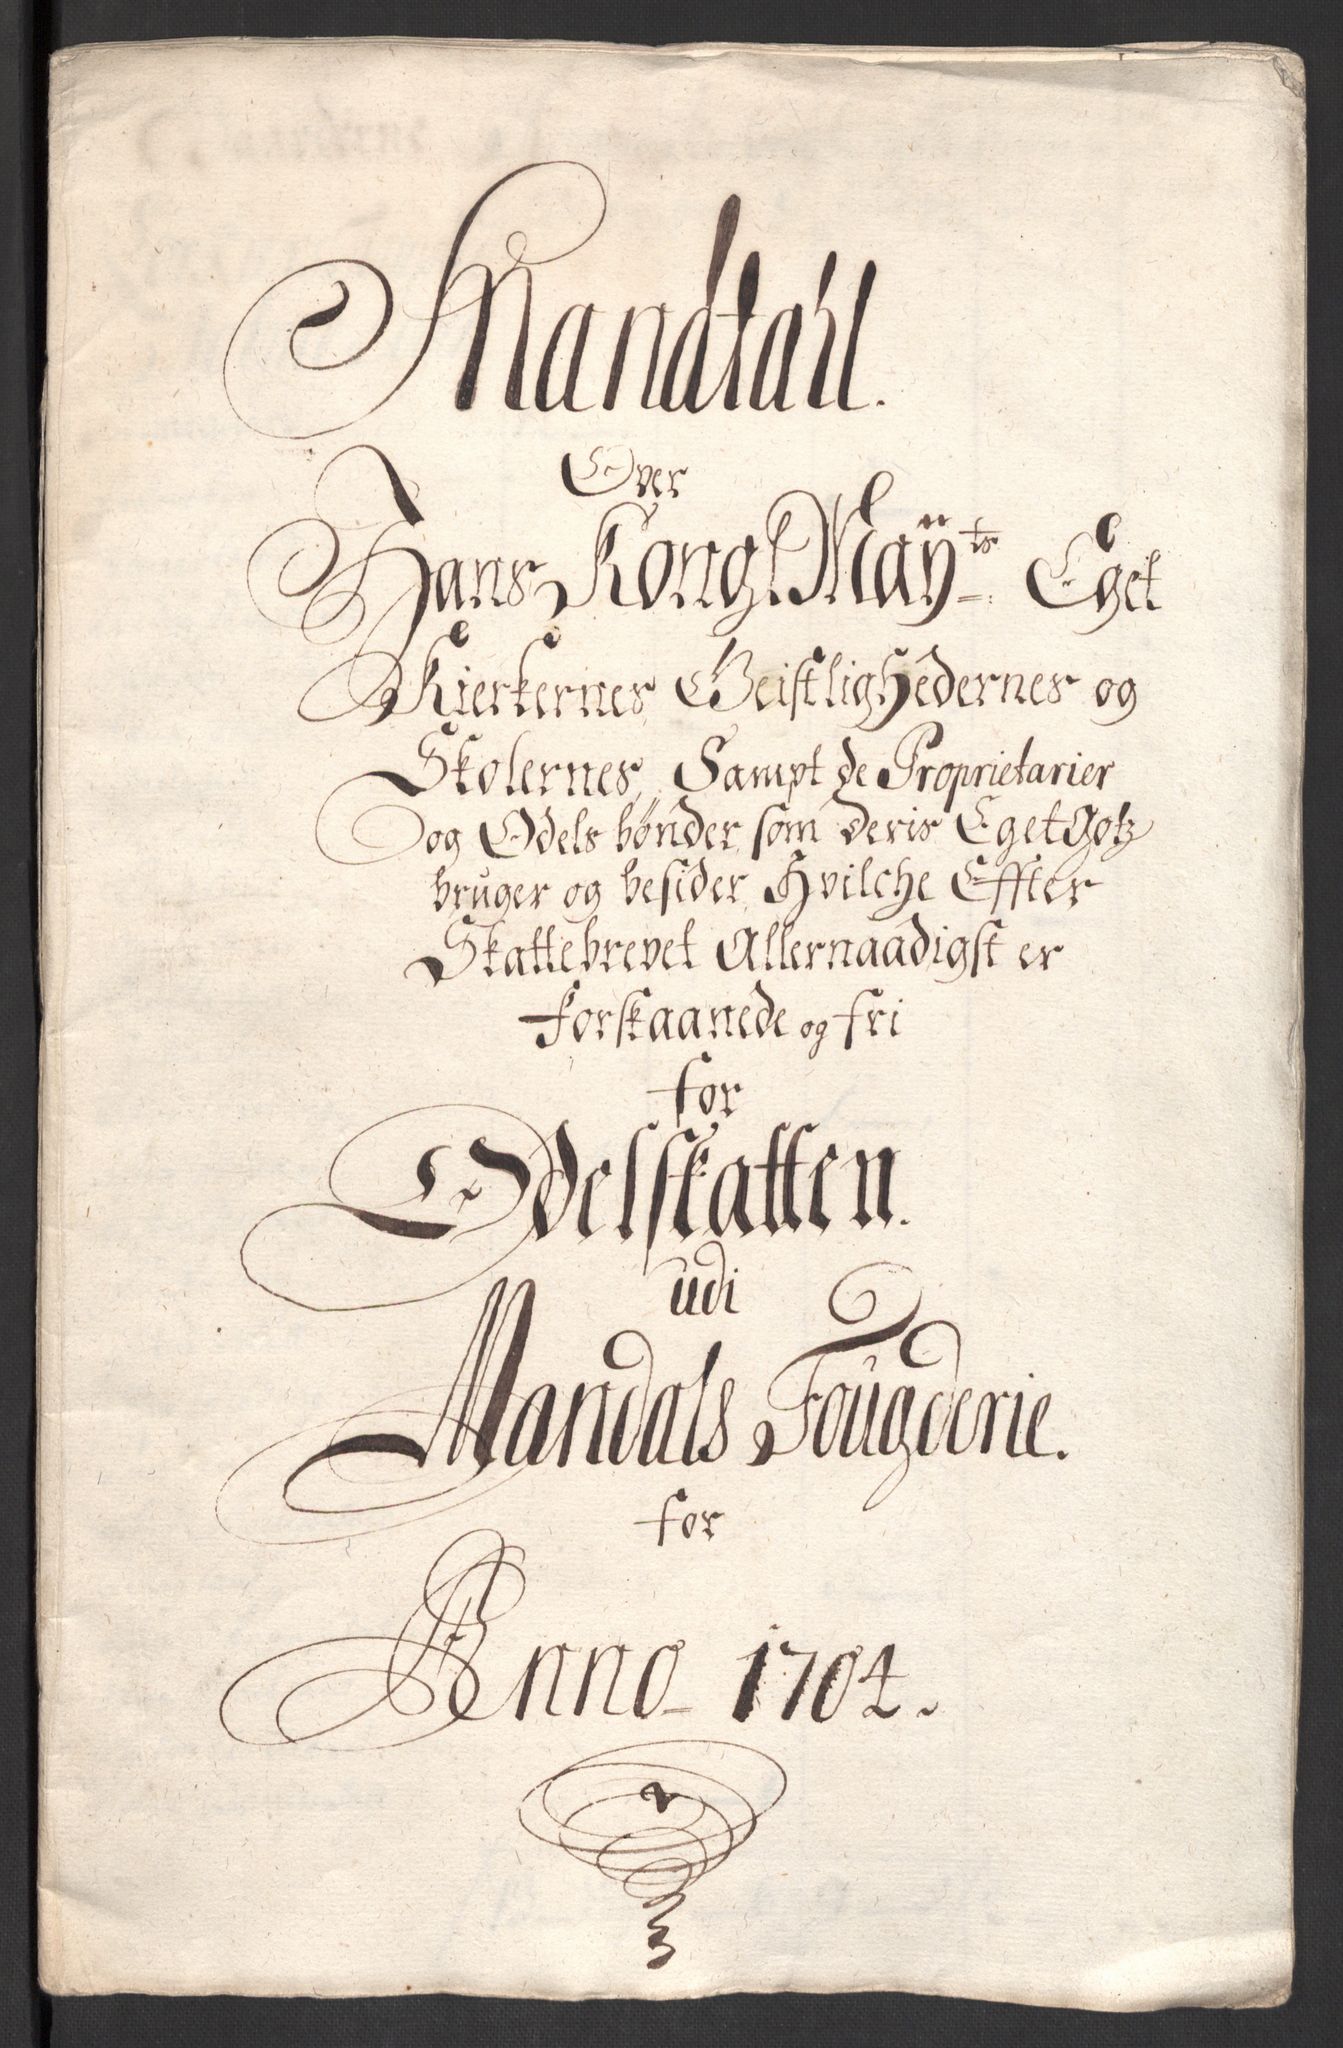 Mandtall.
Over
Hans Kongl Maÿts Eget
Kierkernes Geistlighedernes og
Skolernes, Sampt de Proprietarier
og Odels bønder som deris Eget gotz
bruger og besider, Hvilche Effter
Skattebrevet Allernaadigst er
forskaanede og fri
for
Odelskatten.
udi
Mandals Fougderie.
for
Anno 1704.